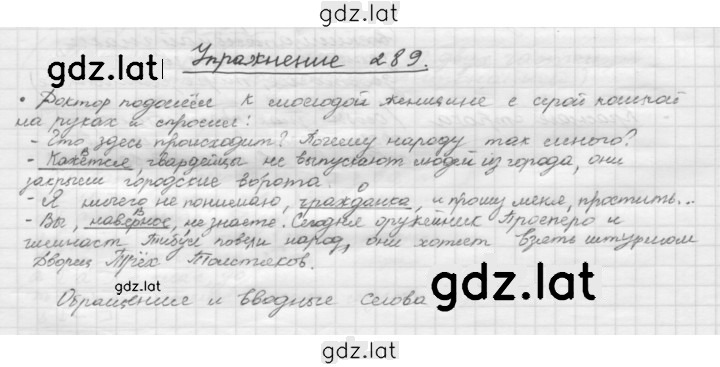 gdz.lat
gdz.lat
Упражнение 289.
• Доктор подошёл к молодой женщине с серой кошкой
на руках и спросил:
- Что здесь происходит? Почему народу так много?
В
- Кажется, гвардейцы не выпускают людей из города, они
закрыли городские ворота.
О
- Я ничего не понимаю, гражданка, и прошу меня, простить...
В
- Вы, наверное, не знаете. Сегодня оружейник Просперо и
гимнаст Тибул повели народ, они хотят взять штурмом
Дворец Трёх Толстяков.
gdz.lat
gdz.lat
Обращение и вводные слова
gdz.lat